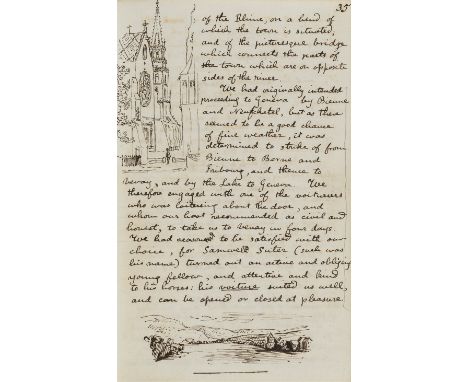 35
of the Rhine, on a bend of
which the town is situated,
and of the picturesque bridge
which connects the parts of
the town which are on opposite
sides of the river.
We had originally intended
proceeding to Geneva by Bienne
and Neufchatel, but as there
seemed to be a good chance
of fine weather, it was
determined to strike of from
Bienne to Berne and
Fribourg, and thence to
Vevay, and by the Lake to Geneva. We
therefore engaged with one of the voituriers
who was loitering about the door, and
whom our host recommended as civil and
honest, to take us to Vevay in four days.
We had reason to be satisfied with our
choice, for Samuel Suter (such was
his name) turned out an active and obliging
young fellow, and attentive and kind
to his horses: his voiture suited us well,
and can be opened or closed at pleasure.